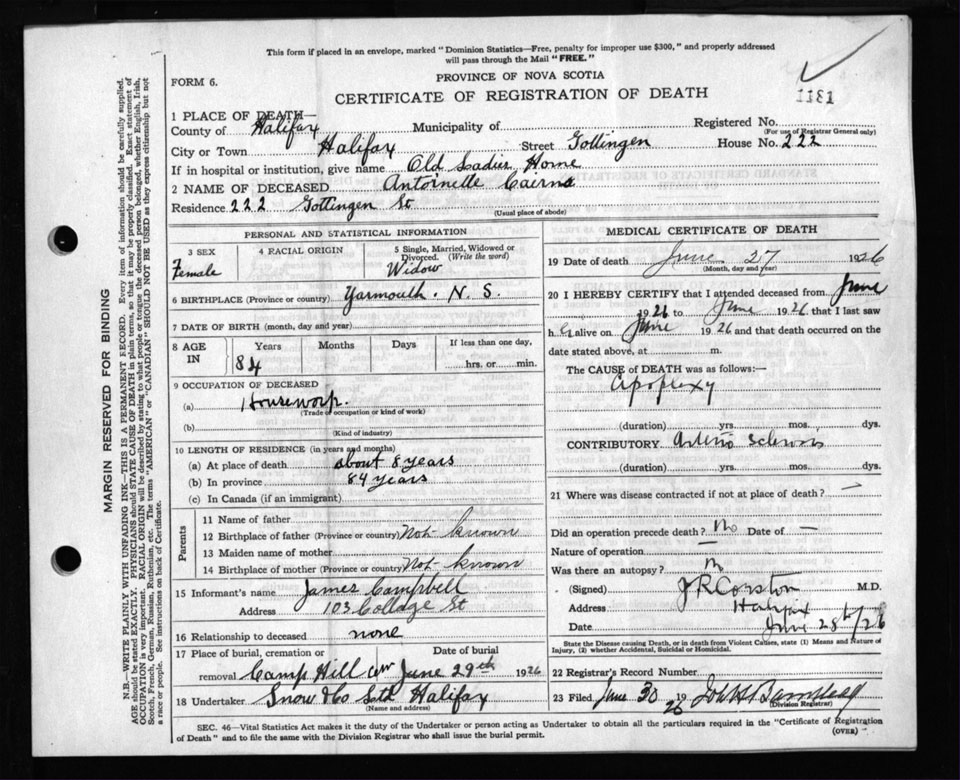 This form if placed in an envelope, marked "Dominion Statistics—Free, penalty for improper use $300," and properly addressed
will pass through the Mail "FREE."
PROVINCE OF NOVA SCOTIA
FORM 6.
CERTIFICATE OF REGISTRATION OF DEATH
1311
1 PLACE OF DEATH—
County of Halifax Municipality of Registered No.
(For use of Registrar General only)
City or Town Halifax Street Gottingen House No. 222
If in hospital or institution, give name Old Ladies Home
2 NAME OF DECEASED Antoinette Cairns
Residence 222 Gottingen St
(Usual place of abode)
PERSONAL AND STATISTICAL INFORMATION
3 SEX 4 RACIAL ORIGIN 5 Single, Married, Widowed or Divorced. (Write the word)
Female Widow
6 BIRTHPLACE (Province or country) Yarmouth. N. S.
7 DATE OF BIRTH (month, day and year)
8 AGE IN Years Months Days If less than one day,
84 hrs. or min.
9 OCCUPATION OF DECEASED
(a) Housework.
(Trade or occupation or kind of work)
(b)
(Kind of industry)
10 LENGTH OF RESIDENCE (in years and months)
(a) At place of death about 8 years
(b) In province 84 years
(c) In Canada (if an immigrant)
Parents
11 Name of father
12 Birthplace of father (Province or country) Not known
13 Maiden name of mother
14 Birthplace of mother (Province or country) Not known
15 Informant's name James Campbell
Address 103 College St
16 Relationship to deceased none
17 Place of burial, cremation or Date of burial
removal Camp Hill Cem June 29th 1926
18 Undertaker Snow & Co Ltd Halifax
(Name and address)
MEDICAL CERTIFICATE OF DEATH
19 Date of death June 27 1926
(Month, day and year)
20 I HEREBY CERTIFY that I attended deceased from June
1926 to June 1926 that I last saw
h er alive on June 1926 and that death occurred on the
date stated above, at m.
The CAUSE of DEATH was as follows:—
Apoplexy
(duration) yrs. mos. dys.
CONTRIBUTORY Arterio Sclerosis
(duration) yrs. mos. dys.
21 Where was disease contracted if not at place of death? —
Did an operation precede death? No Date of —
Nature of operation —
Was there an autopsy? No
(Signed) J R Corston M.D.
Address Halifax
Date June 28th/26
State the Disease causing Death, or in death from Violent Causes, state (1) Means and Nature of
Injury, (2) whether Accidental, Suicidal or Homicidal.
22 Registrar's Record Number
23 Filed June 30 1926
(Division Registrar)
SEC. 46—Vital Statistics Act makes it the duty of the Undertaker or person acting as Undertaker to obtain all the particulars required in the "Certificate of Registration
of Death" and to file the same with the Division Registrar who shall issue the burial permit.
(OVER)
MARGIN RESERVED FOR BINDING
N.B.—WRITE PLAINLY WITH UNFADING INK—THIS IS A PERMANENT RECORD. Every item of information should be carefully supplied.
AGE should be stated EXACTLY. PHYSICIANS should STATE CAUSE OF DEATH in plain terms, so that it may be properly classified. Exact statement of
OCCUPATION is very important. RACIAL ORIGIN will be described by stating to what people or tongue the deceased person belonged, whether English, Irish,
Scotch, French, German, Russian, Ruthenian, etc. The terms "AMERICAN" or "CANADIAN" SHOULD NOT BE USED as they express citizenship but not
a race or people. See instructions on back of Certificate.